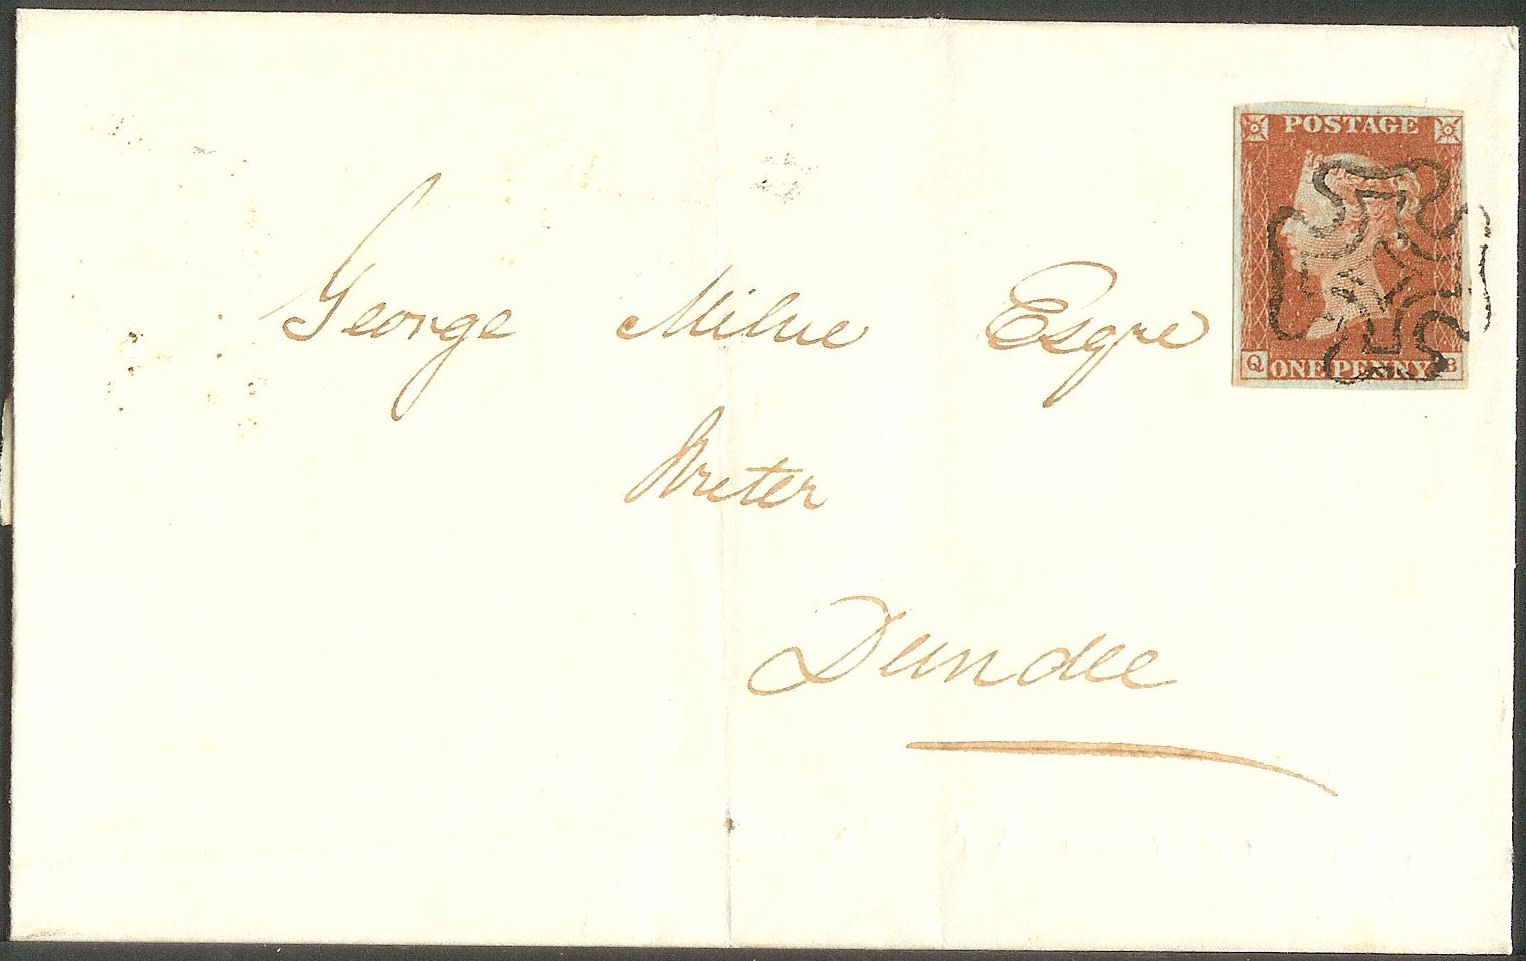 POSTAGE
Q ONE PENNY B
George Milne Esqre
Writer
Dundee